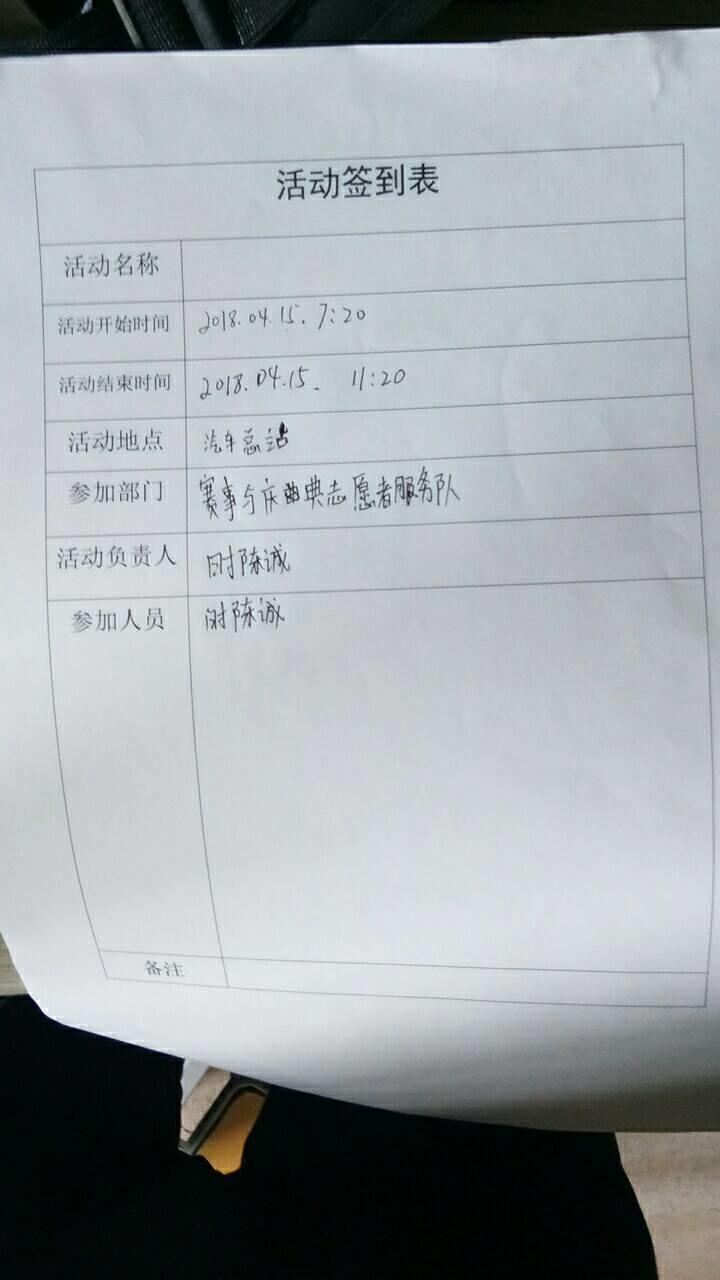 活动签到表
活动名称
活动开始时间 2018.04.15. 7:20
活动结束时间 2018.04.15. 11:20
活动地点 汽车总站
参加部门 赛事与庆典志愿者服务队
活动负责人 时陈诚
参加人员 时陈诚
备注